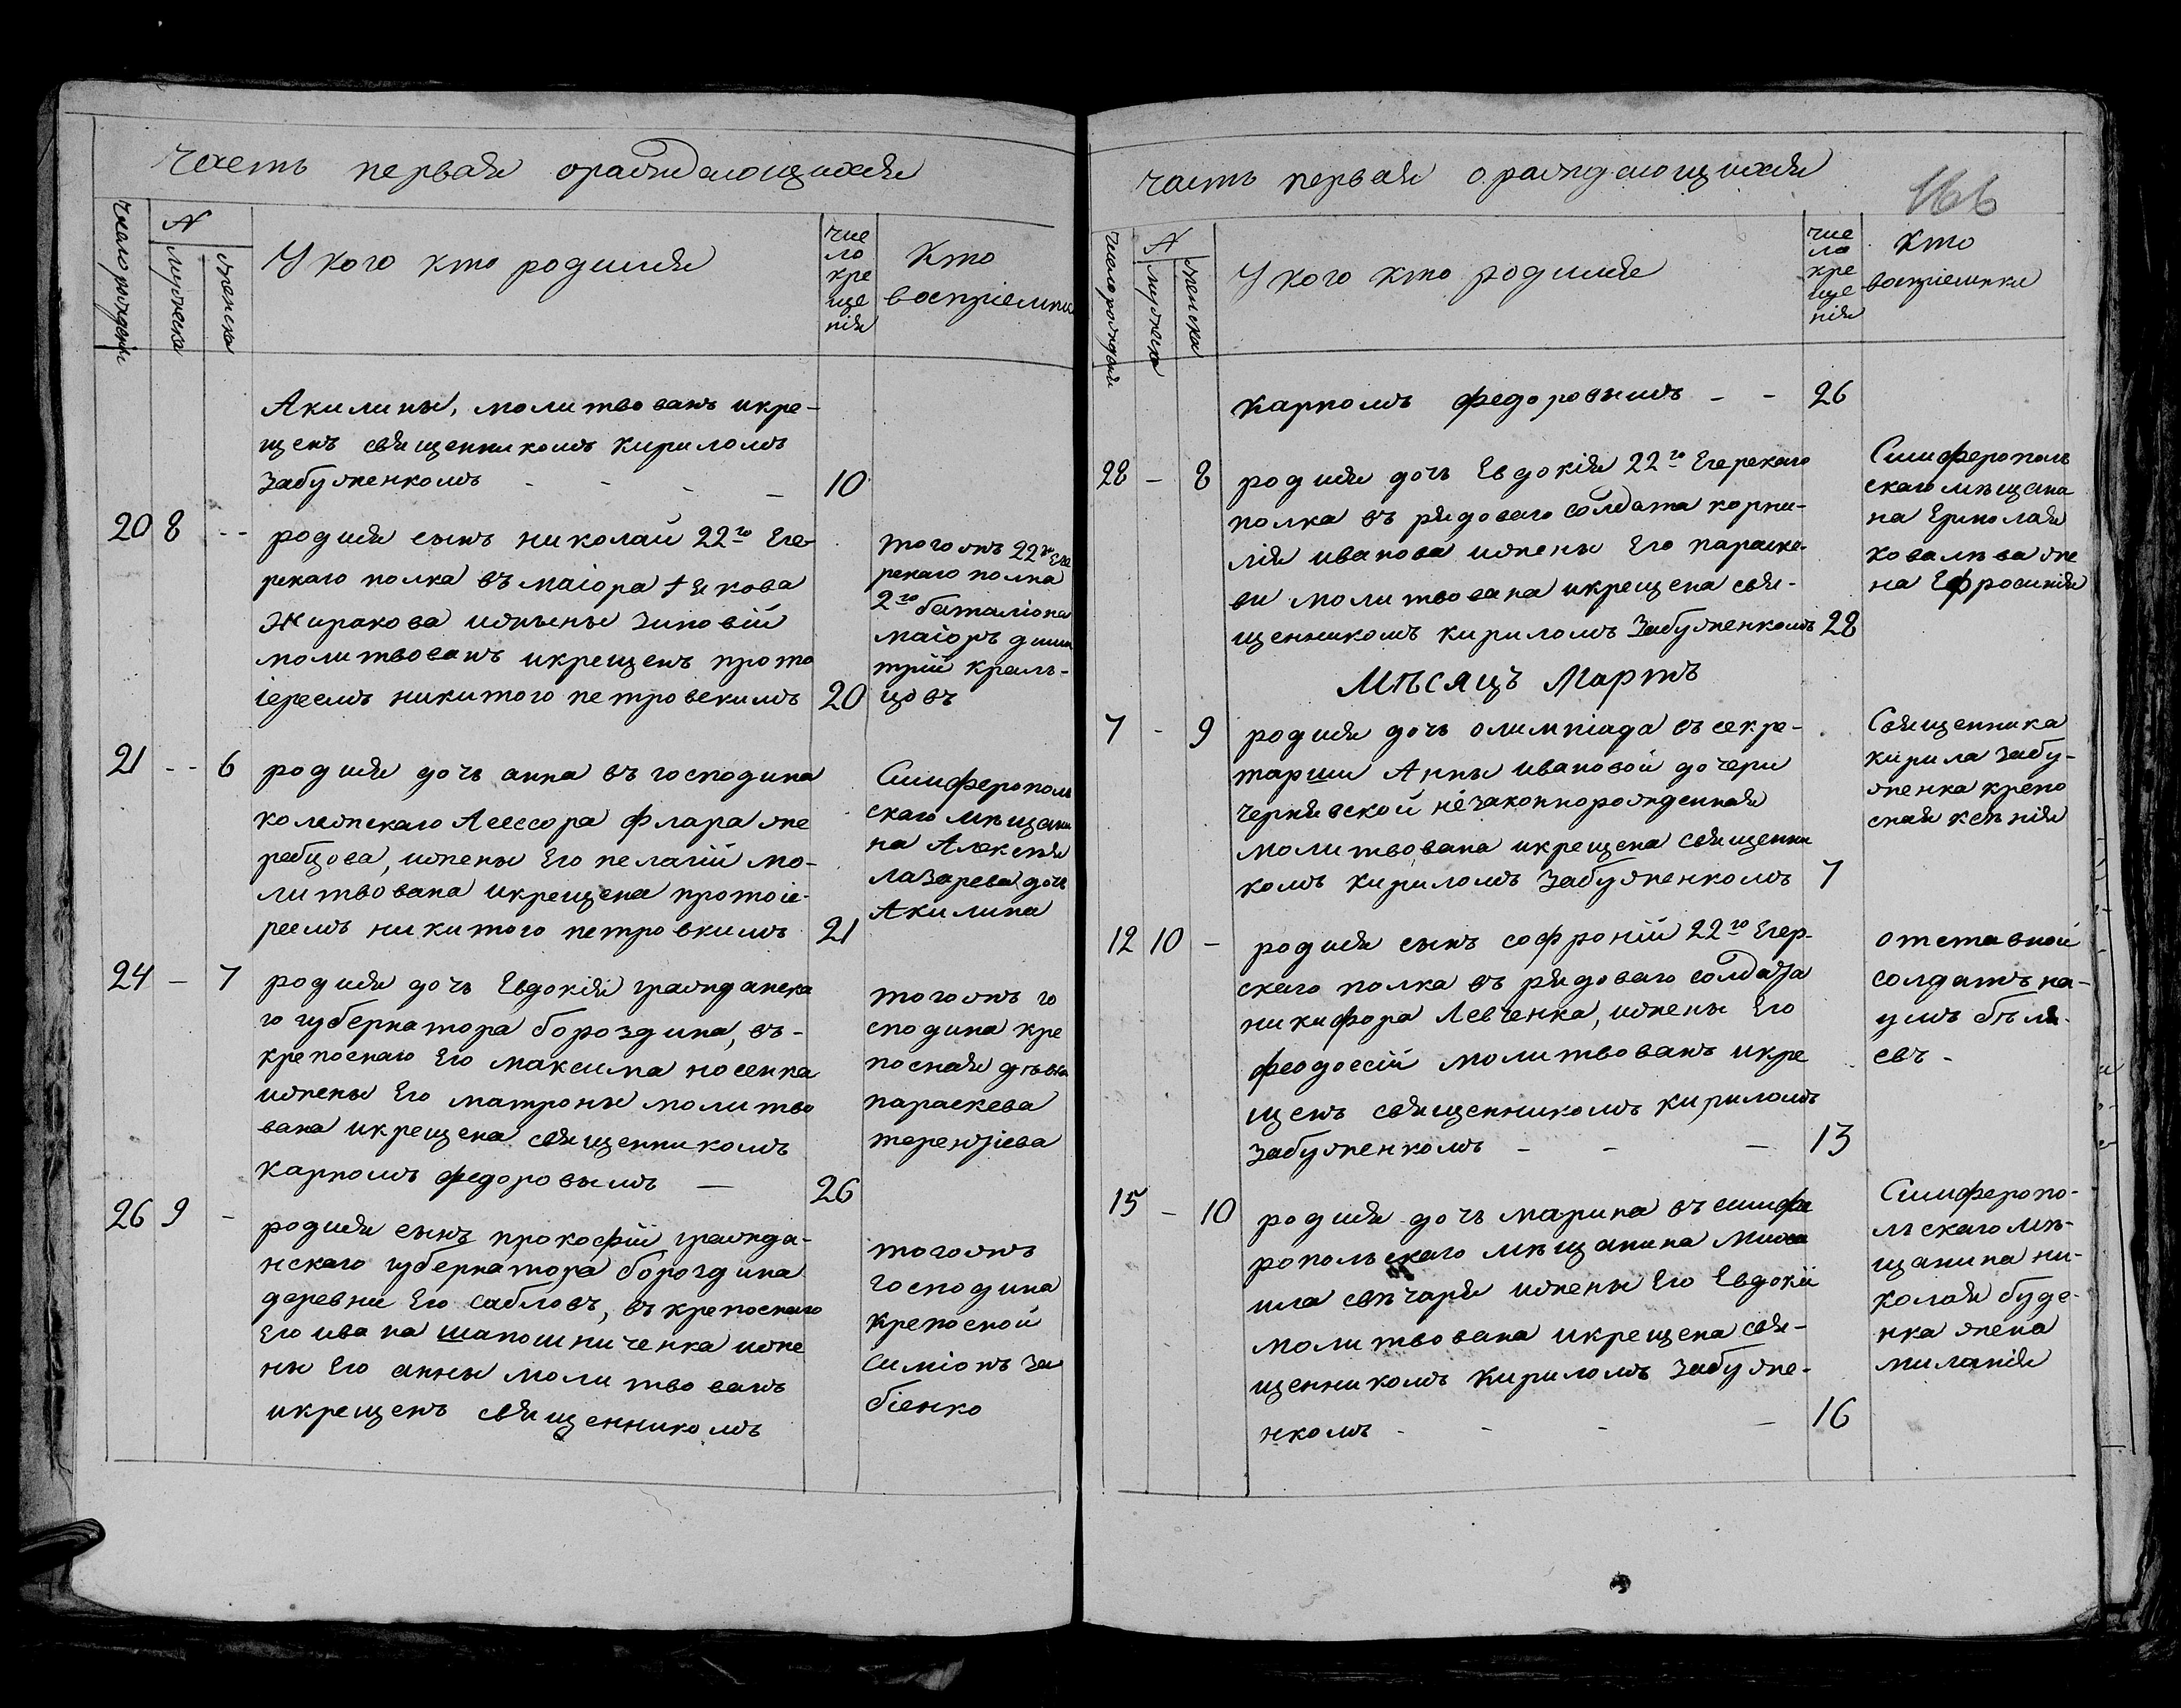 часть первая ораждающихся
число рождения
N
мужеска
женска
У кого кто родился
чис
ло
кре
ще
нія
Кто
воспріемник
Акилины, молитвованъ икре-
щенъ священникомъ Кириломъ
Забуженкомъ - - - - 10
20 8 -- родился сынъ николай 22го Еге-
рскаго полка въ маіора
Жиракова ижены зиновій
молитвованъ икрещенъ прото
іереемъ никитою петровскимъ 20
тогожъ 22го Еге
рскаго полка
2го баталіона
маіоръ дими
трій краль-
цовъ
21 -- 6 родился дочь анна въ господина
колежскаго Асессора Флара же
ребцова, ижены Его пелагій мо-
литвована икрещена протоіе-
реемъ никитою петровкимъ 21
Симферополь
скаго мещани
на Алексея
лазарева дочь
Акилина
24 - 7 родился дочь Евдокія гражданска
го губернатора бороздина, въ-
крепоснаго Его максима носенка
ижены Его матроны молитво
вана икрещена священникомъ
Карпомъ федоровымъ - 26
тогожъ го
сподина кре
посная девка
параскева
терентіева
26 9 - родился сынъ прокофій гражда-
нскаго губернатора бороздина
деревни Его Сабловъ, въ крепоснаго
Его ивана шапошниченка иже
ны Его анны молитвованъ
икрещенъ священникомъ
тогожъ
господина
крепосной
симіонъ за
біенко
часть первая ораждающихся
166
число рожденія
N
мужеска
женска
У кого кто родился
чис
ло
кре
ще
нія
Кто
воспріемники
Карпомъ федоровымъ - - 26
28 - 8 родился дочь Евдокія 22го Егерскаго
полка въ рядоваго солдата корни-
лія иванова ижены Его параске-
ви молитвована икрещена свя-
щенникомъ кириломъ Забуженкомъ 28
Симферополь
скаго мещани
на Ермолая
ковалева же
на Ефросинія
Мѣсяцъ Мартъ
7 - 9 родился дочь олимпіада въ секре-
тарши Анны ивановой дочери
чернявской незаконнорожденная
молитвована икрещена священни
комъ кириломъ Забуженкомъ 7
Священника
кирила забу-
женка крепо
сная ксенія
12 10 - родился сынъ софроній 22го Егер-
скаго полка въ рядоваго солдата
никифора Левченка, ижены Его
феодосій молитвованъ икре
щенъ священникомъ кириломъ
забуженкомъ - - - 13
отставной
солдатъ на-
умъ бѣля-
евъ -
15 - 10 родился дочь марина въ симфе
ропольскаго мѣщанина миха
ила свѣчаря ижены Его Евдокіи
молитвована икрещена свя-
щенникомъ Кириломъ Забуже-
нкомъ - - - - 16
Симферопо-
льскаго мѣ-
щанина ни-
колая буде-
нка жена
миланія